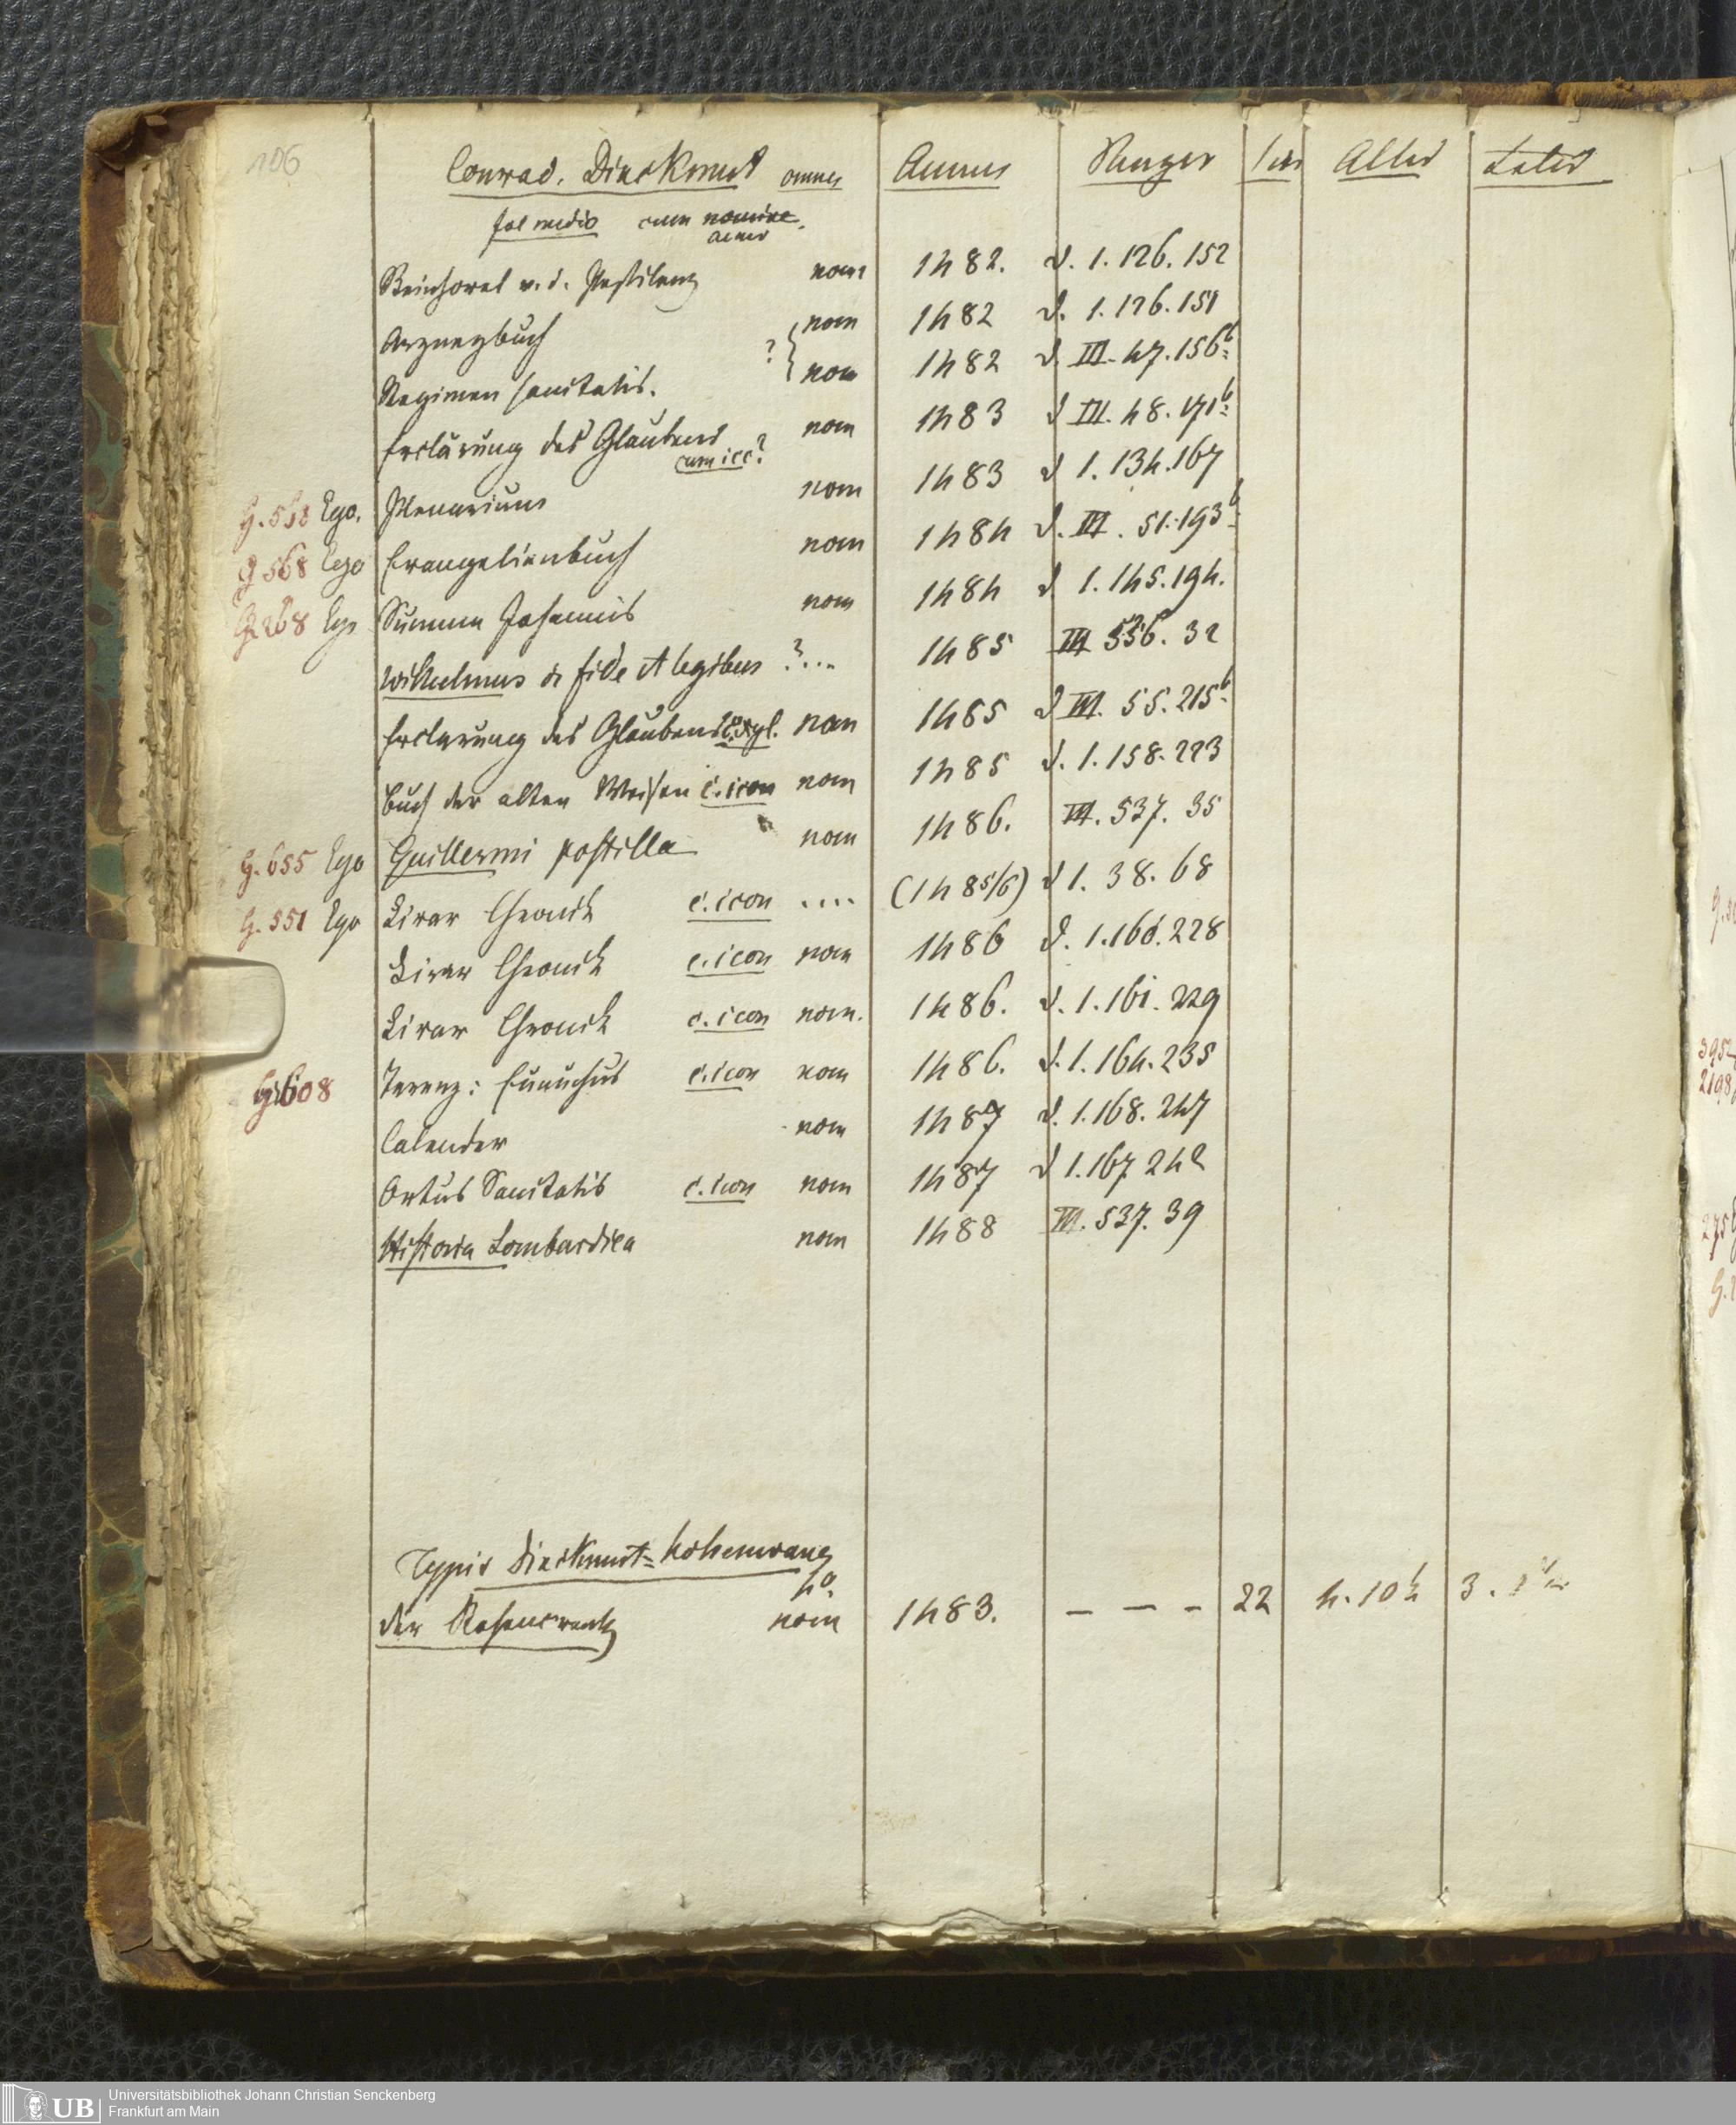 106
Conrad. Dinckmut omnes Annus Panzer lin Alter Later
fol medio cum nomine.
anno
Steinhowel v. d. Pestilenz nom 1482. d. 1. 126. 152
Arzneybuch nom 1482 d. 1. 126. 151
Regimen sanitatis. ? { nom 1482 d. III. 47. 156b
Erclärung des Glaubens nom 1483 d III. 48. 171b
cum icc?
G. 568 Ego. Plenarium nom 1483 d 1. 134. 167
G 568 Ego Evangelienbuch nom 1484 d. III. 51. 193b
G 268 Ego Summa Johannis nom 1484 d 1. 145. 194.
Wilhelmus de fide et legibus ?... 1485 III 536. 32
Erclarung des Glaubens c. xyl. nom 1485 d III. 55. 215b
Buch der alten Weisen c. icon nom 1485 d. 1. 158. 223
G. 655 Ego Guillermi postilla nom 1486. III. 537. 35
G. 551 Ego Lirar Chronik c. icon .... (1485/6) d 1. 38. 68
Lirar Chronik c. icon nom 1486 d. 1. 160. 228
Lirar Chronik c. icon nom. 1486. d. 1. 161. 229
G 608 Terenz: Eunuchus c. icon nom 1486. d. 1. 164. 235
Calender nom 1487 d. 1. 168. 247
Ortus Sanitatis c. icon nom 1487 d 1. 167 242
Historia Lombardica nom 1488 III. 537. 39
Typis Dinckmut= Hohenwang
4o.
der Rosencrantz nom 1483. – – – 22 4. 10 3.
UB
Universitätsbibliothek Johann Christian Senckenberg
Frankfurt am Main